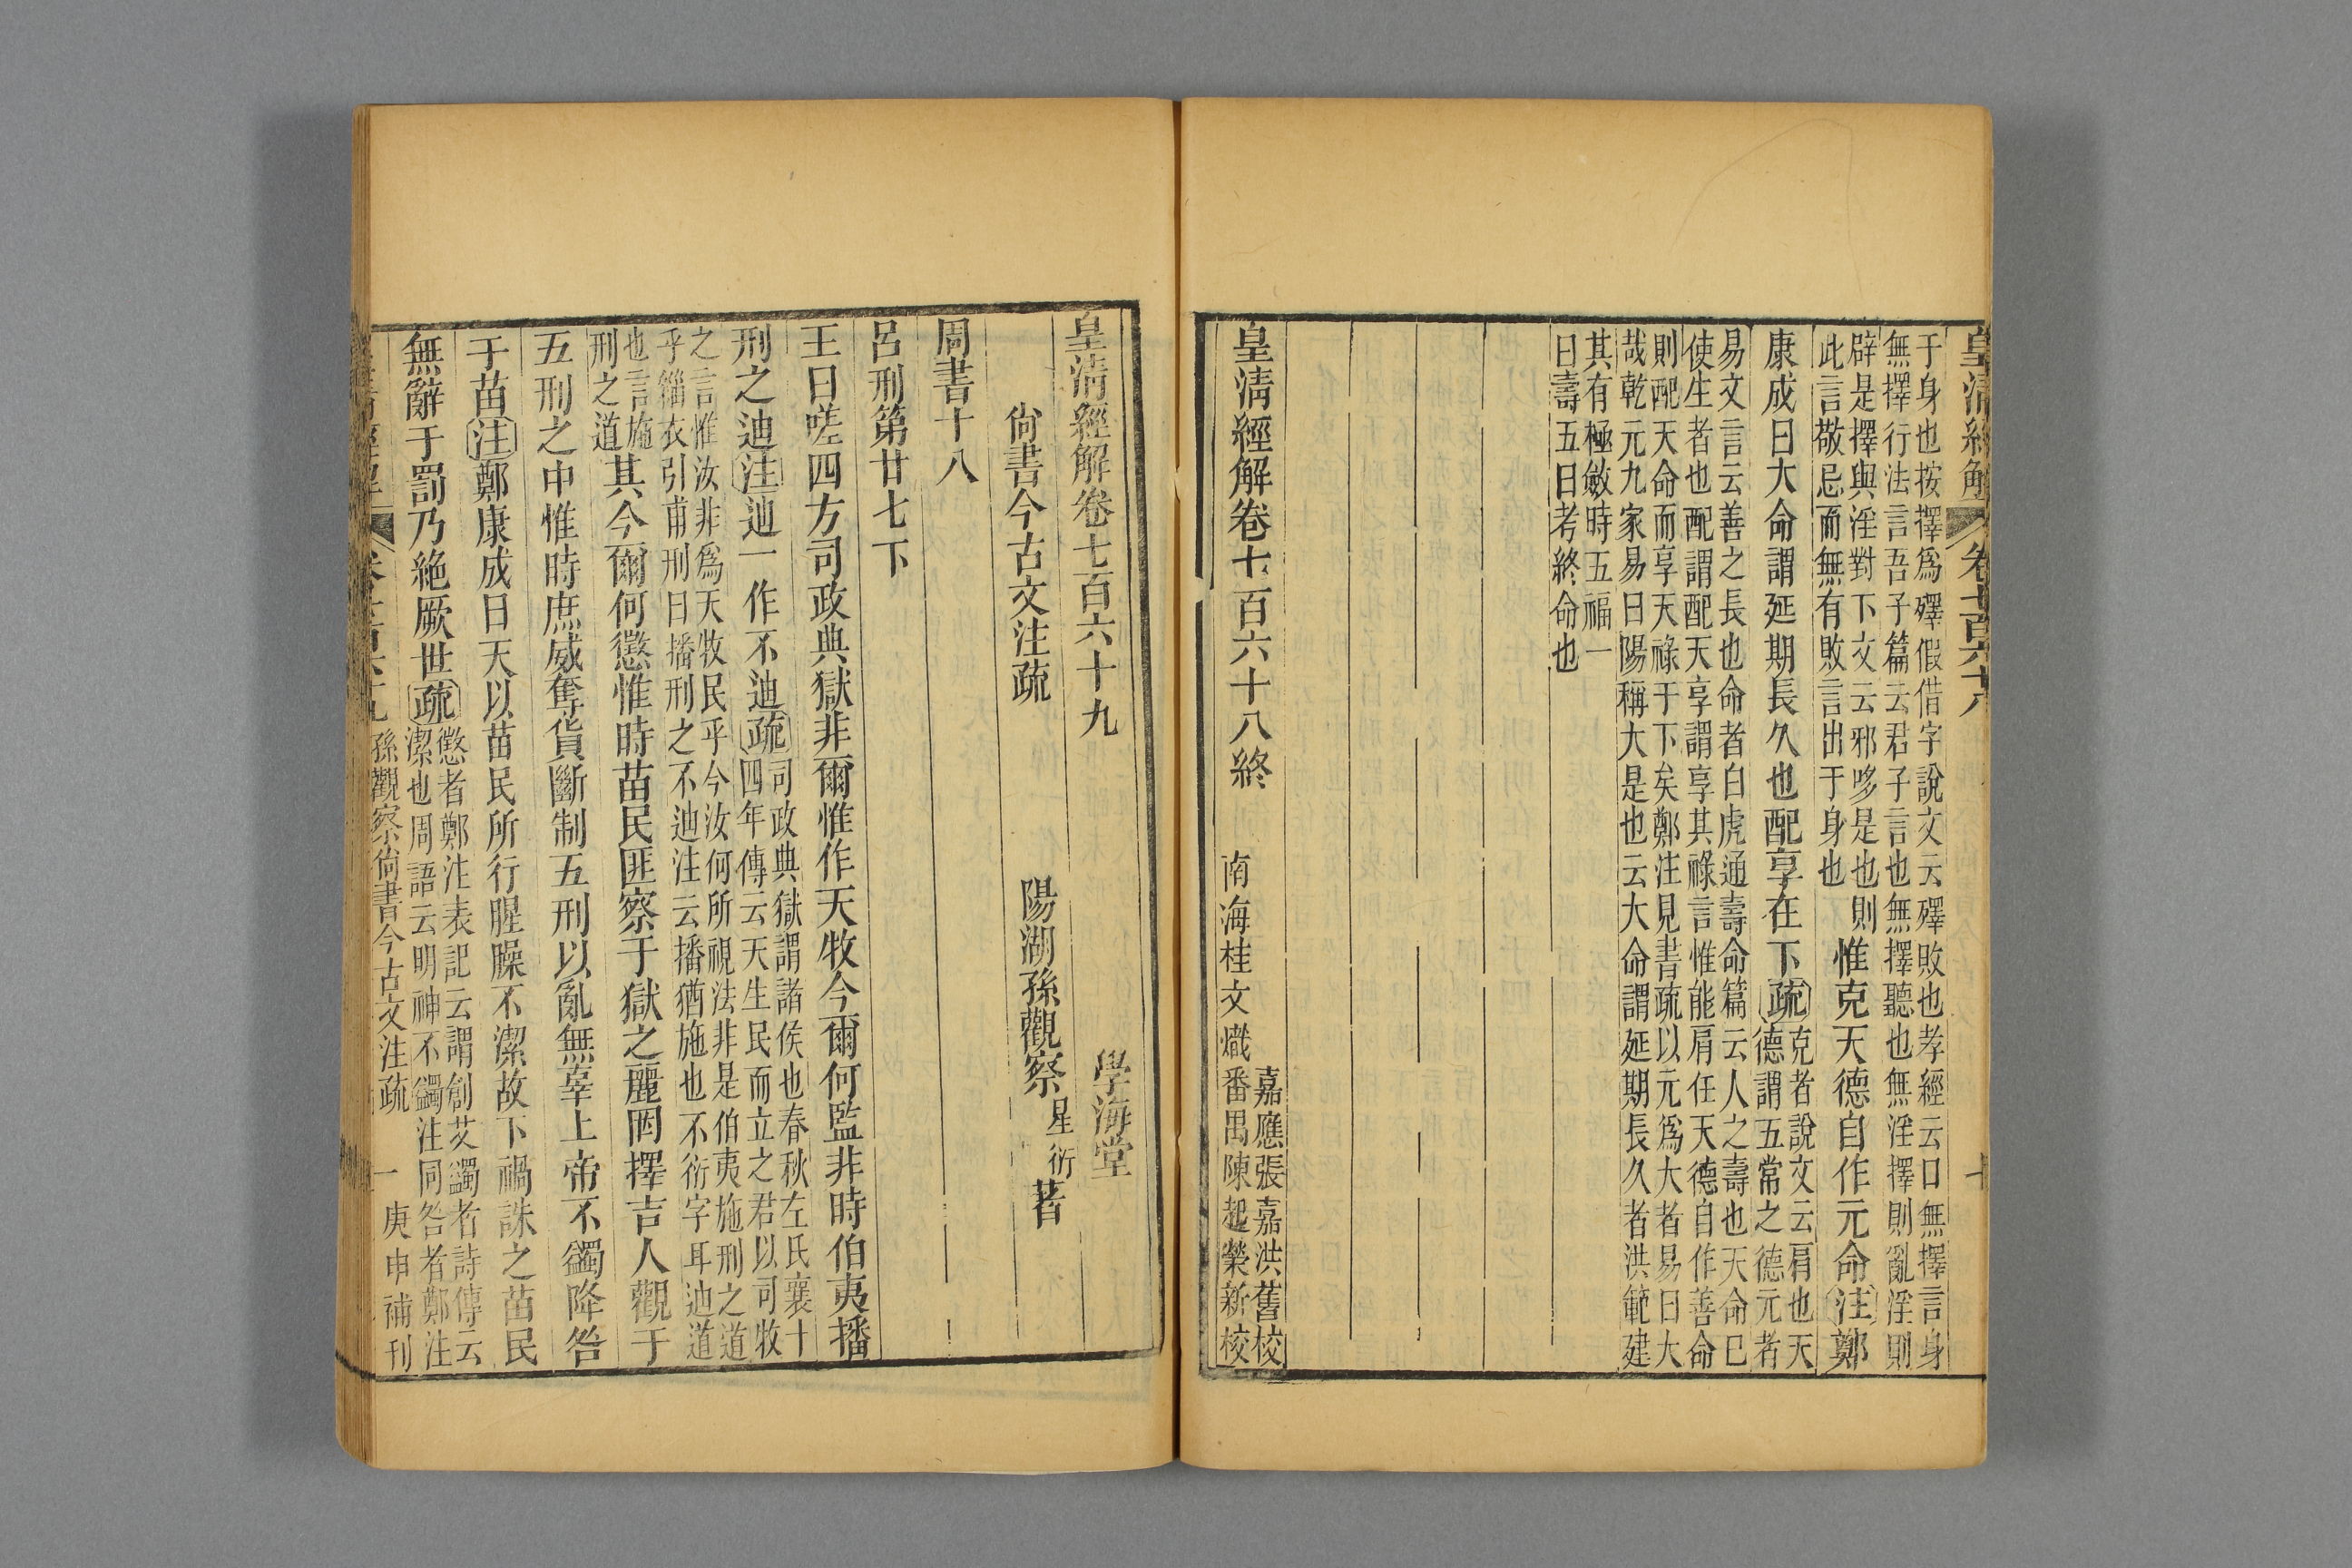 皇清經解
卷七百六十八
十
于身也按擇爲殬假借字說文云殬敗也孝經云口無擇言身
無擇行法言吾子篇云君子言也無擇聽也無淫擇則亂淫則
辟是擇與淫對下文云邪哆是也則
此言敬忌而無有敗言出于身也
惟克天德自作元命注鄭
康成曰大命謂延期長久也配享在下疏
克者說文云肩也天
德謂五常之德元者
易文言云善之長也命者白虎通壽命篇云人之壽也天命已
使生者也配謂配天享謂享其祿言惟能肩任天德自作善命
則配天命而享天祿于下矣鄭注見書疏以元爲大者易曰大
哉乾元九家易曰陽稱大是也云大命謂延期長久者洪範建
其有極斂時五福一
曰壽五曰考終命也
皇清經解卷七百六十八終
嘉應張嘉洪舊校
南海桂文熾
番禺陳起榮新校
皇清經解卷七百六十九
學海堂
尙書今古文注疏
陽湖孫觀察星衍著
周書十八
呂刑第廿七下
王曰嗟四方司政典獄非爾惟作天牧今爾何監非時伯夷播
刑之迪注迪一作不迪疏
司政典獄謂諸侯也春秋左氏襄十
四年傳云天生民而立之君以司牧
之言惟汝非爲天牧民乎今汝何所視法非是伯夷施刑之道
乎緇衣引甫刑曰播刑之不迪注云播猶施也不衍字耳迪道
也言施
刑之道
其今爾何懲惟時苗民匪察于獄之麗罔擇吉人觀于
五刑之中惟時庶威奪貨斷制五刑以亂無辜上帝不蠲降咎
于苗注鄭康成曰天以苗民所行腥臊不潔故下禍誅之苗民
無辭于罰乃絶厥世疏
懲者鄭注表記云謂創艾蠲者詩傳云
潔也周語云明神不蠲注同咎者鄭注
皇清經解
卷七百六十九
孫觀察尙書今古文注疏
一
庚申補刊